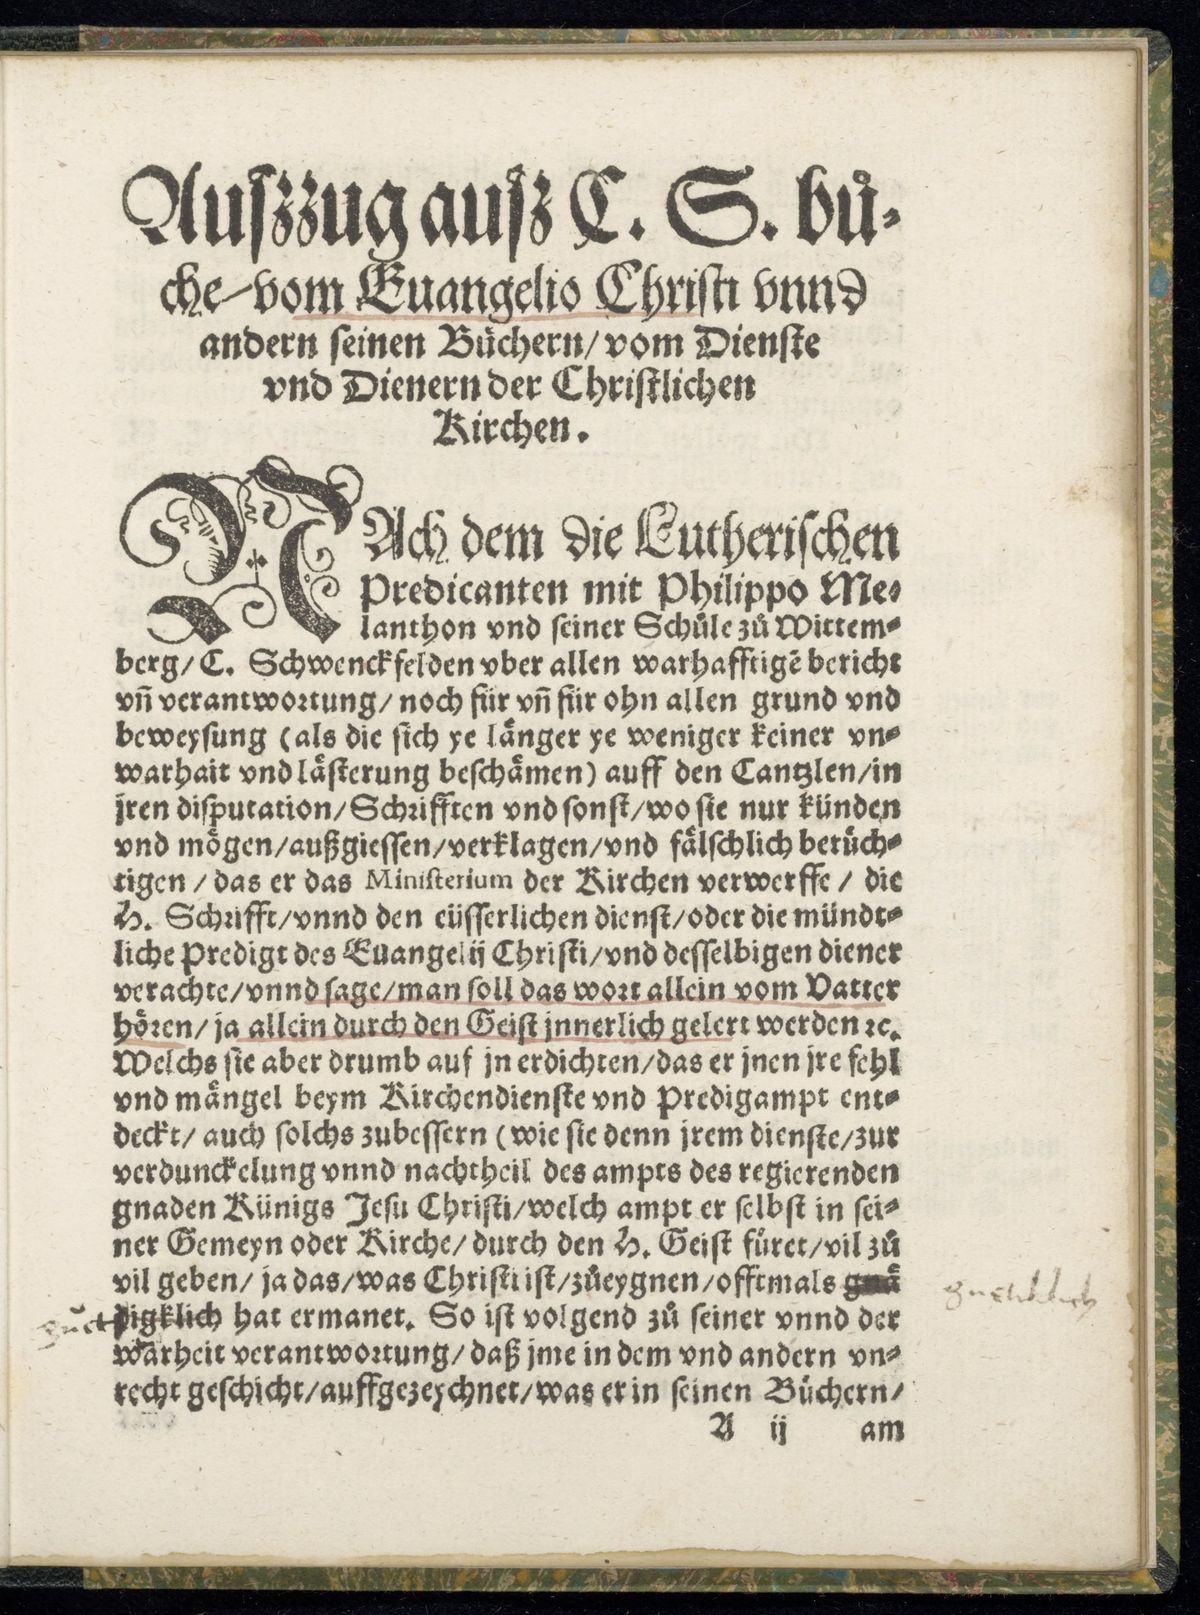 Auſzzug auſz C. S. buͦ⸗
che vom Euangelio Chriſti vnnd
andern ſeinen Buͤchern/ vom Dienſte
vnd Dienern der Chriſtlichen
Kirchen.
NAch dem die Lutheriſchen
Predicanten mit Philippo Me⸗
lanthon vnd ſeiner Schuͦle zuͦ Wittem⸗
berg/ C. Schwenckfelden vber allen warhafftigē bericht
vn̄ verantwortung/ noch für vn̄ für ohn allen grund vnd
beweyſung (als die ſich ye laͤnger ye weniger keiner vn⸗
warhait vnd laͤſterung beſchaͤmen) auff den Cantzlen/ in
jren diſputation/ Schrifften vnd ſonſt/ wo ſie nur künden
vnd moͤgen/ außgieſſen/ verklagen/ vnd faͤlſchlich beruͤch⸗
tigen / das er das Miniſterium der Kirchen verwerffe / die
H. Schrifft/ vnnd den eüſſerlichen dienſt/ oder die mündt⸗
liche Predigt des Euangelij Chriſti/ vnd desſelbigen diener
verachte/ vnnd ſage/ man ſoll das wort allein vom Vatter
hoͤren/ ja allein durch den Geiſt jnnerlich gelert werden ꝛc.
Welchs ſie aber drumb auf jn erdichten/ das er jnen jre fehl
vnd maͤngel beym Kirchendienſte vnd Predigampt ent⸗
deckt/ auch ſolchs zubeſſern (wie ſie denn jrem dienſte/ zur
verdunckelung vnnd nachtheil des ampts des regierenden
gnaden Künigs Jeſu Chriſti/ welch ampt er ſelbſt in ſei⸗
ner Gemeyn oder Kirche/ durch den H. Geiſt fuͤret/ vil zuͦ
vil geben/ ja das/ was Chriſti iſt/ zuͦeygnen/ offtmals gnaͤ
digklich hat ermanet. So iſt volgend zuͦ ſeiner vnnd der
warheit verantwortung/ daß jme in dem vnd andern vn⸗
recht geſchicht/ auffgezeychnet/ was er in ſeinen Buͤchern/
A ij am